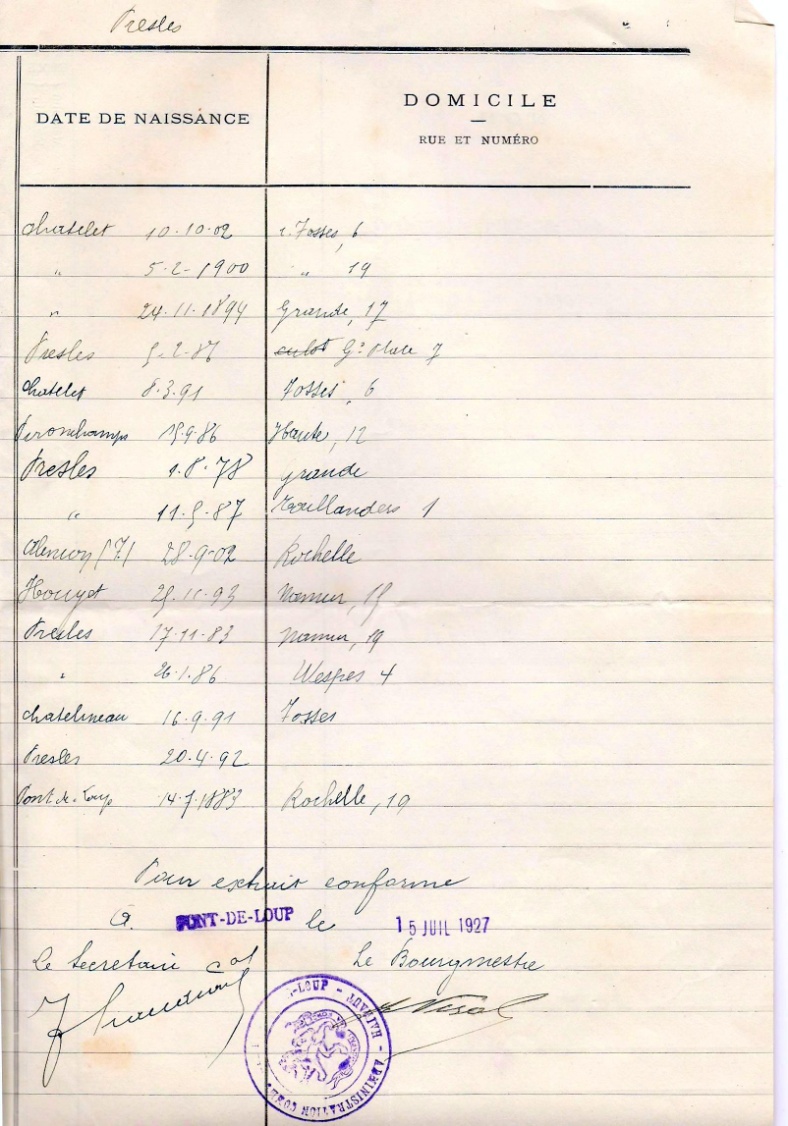 Presles
DATE DE NAISSANCE
DOMICILE
RUE ET NUMÉRO
chatelet 10-10-02 r. Fosses, 6
" 5-2-1900 " 19
" 24.11.1894 Grande, 17
Presles 5-2-87 culot Gde Place 7
chatelet 8.3.91 Fosses, 6
Pironchamps 15-9-86 Haute, 12
Presles 1.8.78 grande
" 11-5-87 Taillanders 1
28-9-02 Rochelle
Houyet 25.11.93 Namur, 15
Presles 17-11-83 Namur, 19
" 26.1.86 Wespes 4
chatelineau 16-9-91 Fosses
Presles 20-4-92
Pont-de-Loup 14-7-1883 Rochelle, 19
Pour extrait conforme
A. PONT-DE-LOUP le 15 JUIL 1927
Le Secretair cal Le Bourgmestre
-LOUP - HAINAUT - ADMINISTRATION COMM